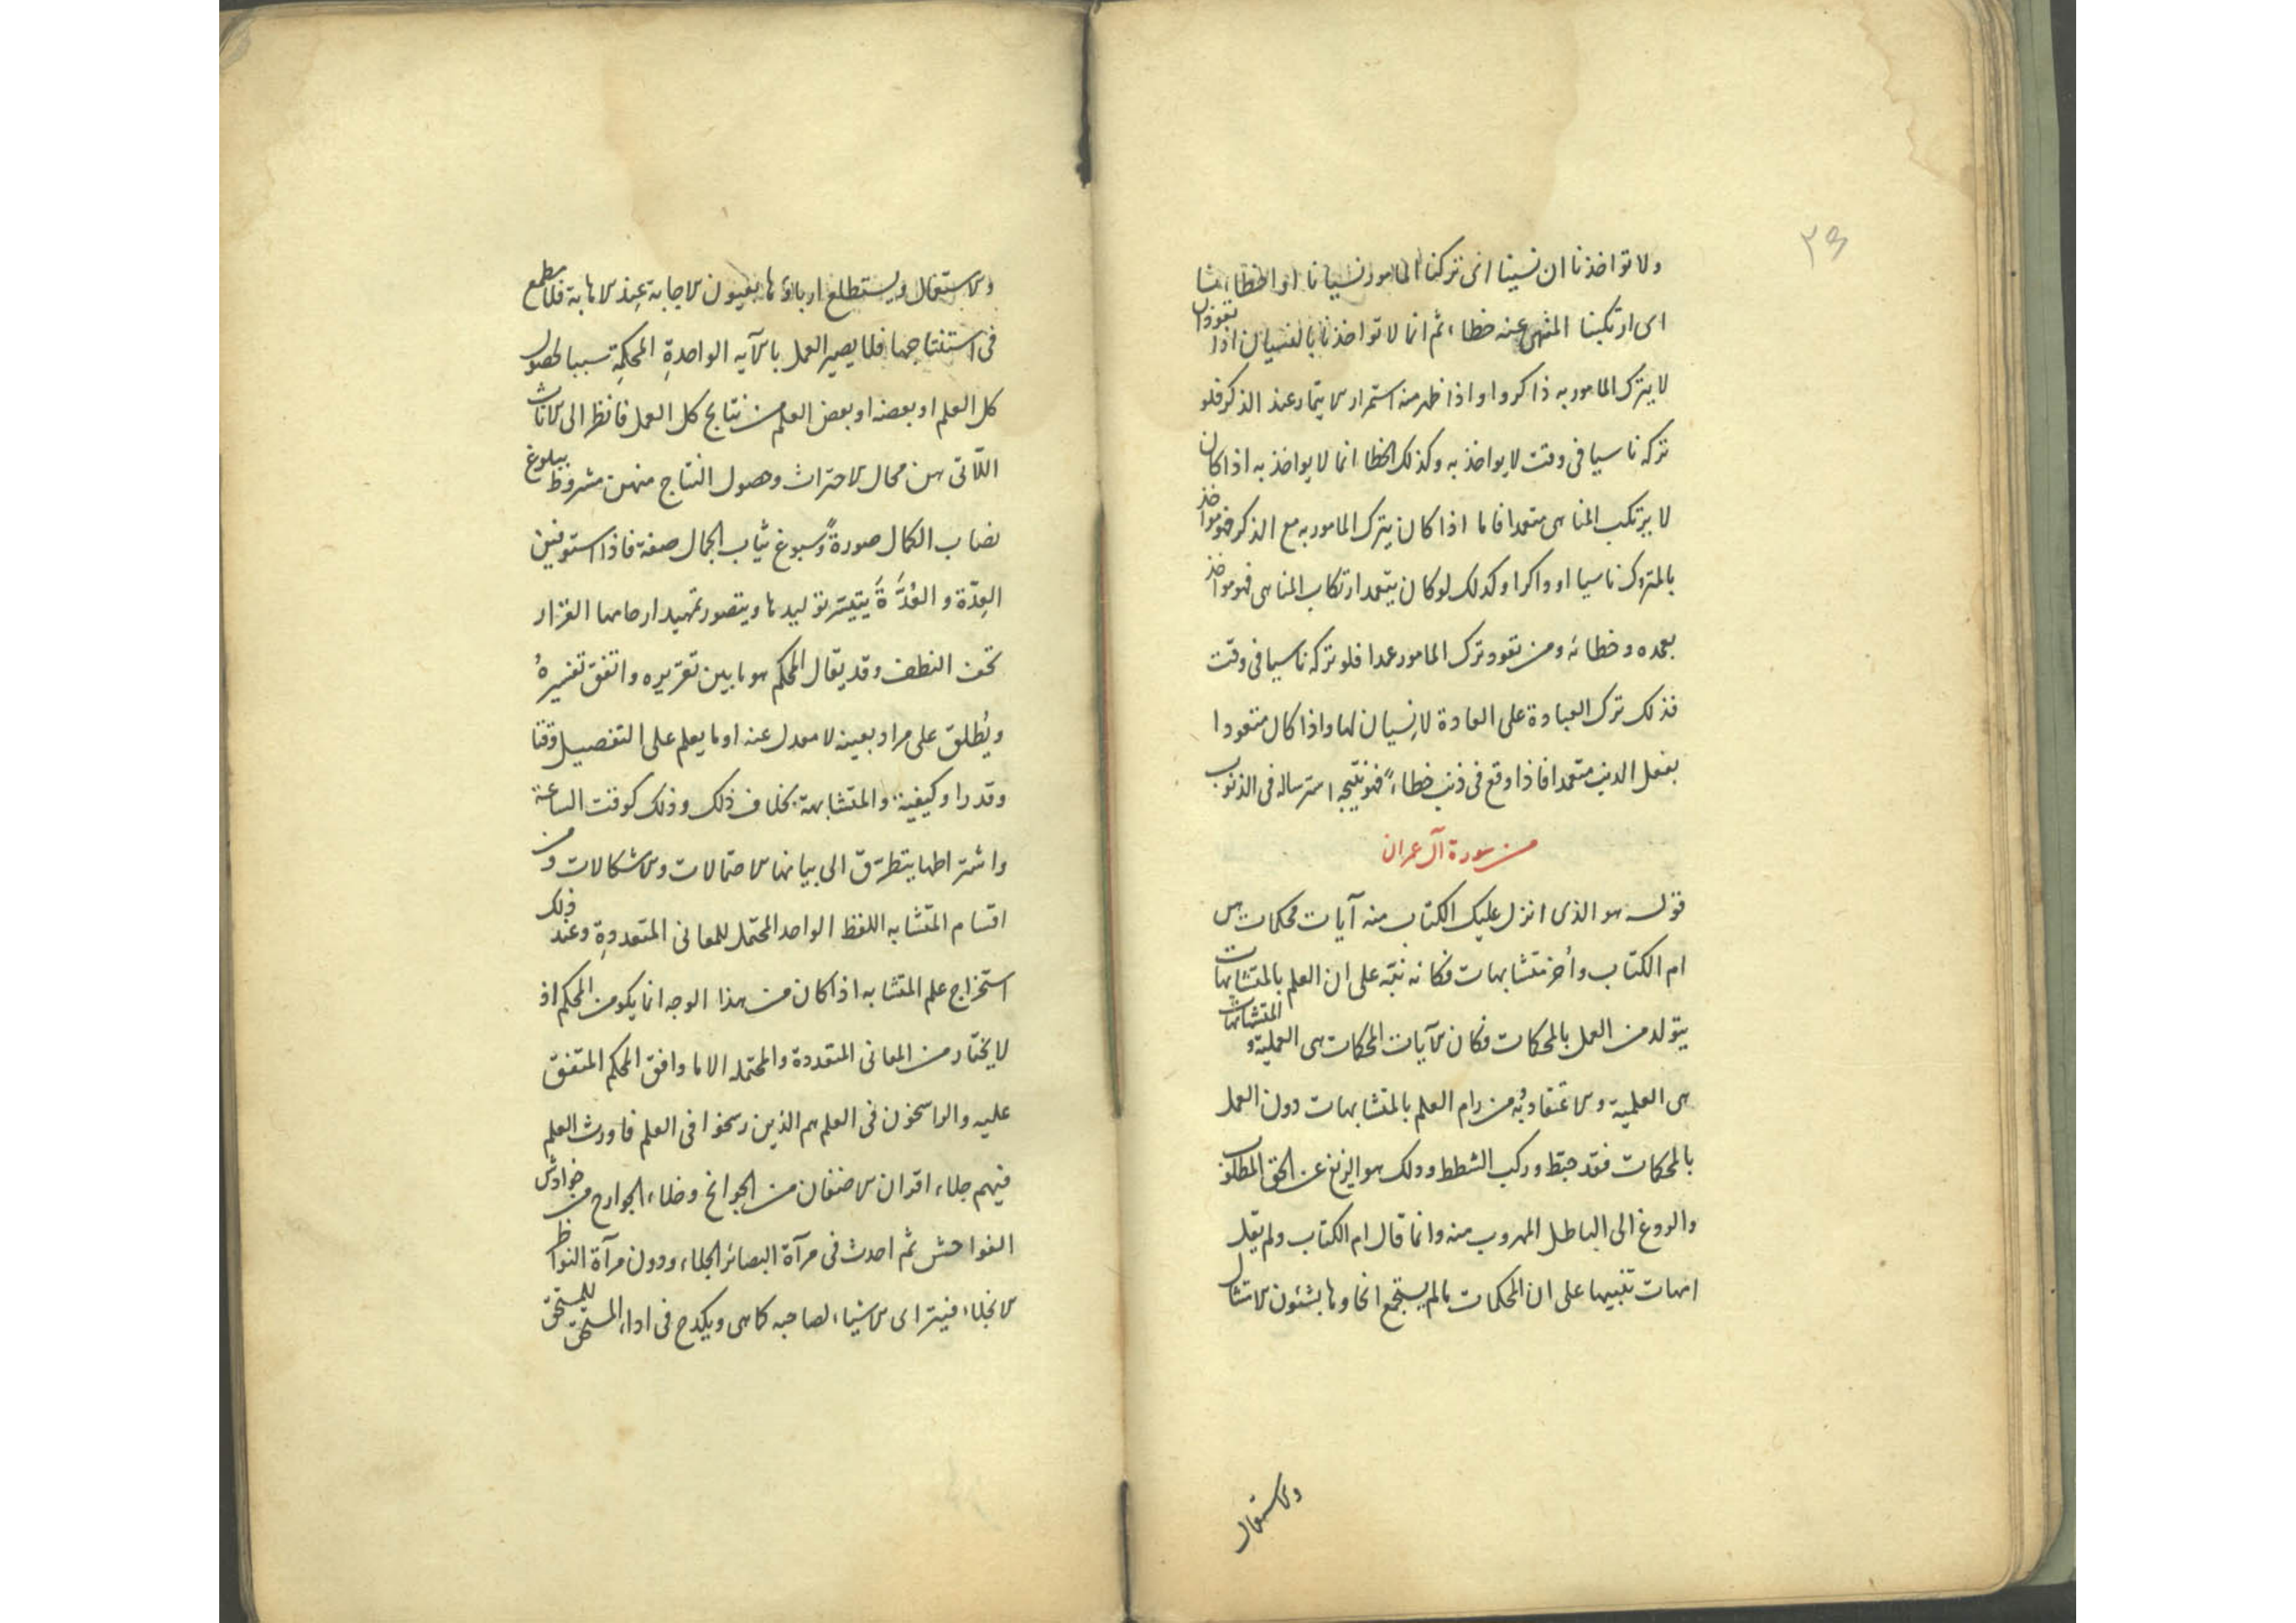 ٢٣
ولا تواخذنا ان نسينا اى تركنا المامور نسيانا او اخطاءنا
اى ارتكبنا المنهى عنه خطاء ثم انما لا تواخذنا بالنسيان اذا تعودان
لا يترك المامور به ذاكرا واذا ظهر منه استمرار الايتمار عند الذكر فلو
تركه ناسيا فى وقت لا يواخذ به وكذلك الخطا انما لا يواخذ به اذا كان
لا يرتكب المناهى متعمدا فاما اذا كان يترك المامور به مع الذكر فهو مواخذ
بالمتروك ناسيا او ذاكرا وكذلك لو كان يتعمد ارتكاب المناهى فهو مواخذ
بعمده وخطائه ومن تعود ترك المامور عمدا فلو تركه ناسيا فى وقت
فذلك ترك العبادة على العادة لا نسيان لها واذا كان متعودا
بفعل الذنب متعمدا فاذا وقع فى ذنب خطاءً فهو نتيجة استرساله فى الذنوب
من سورة آل عمران
قوله هو الذى انزل عليك الكتاب منه آيات محكمات هن
ام الكتاب وأخر متشابهات فكانه نبّه على ان العلم بالمتشابهات
يتولد من العمل بالمحكمات فكان الآيات المحكمات هى العملية والمتشابهات
هى العلمية والاعتقادية فمن رام العلم بالمتشابهات دون العمل
بالمحكمات فقد خبط وركب الشطط وذلك هو الزيغ عن الحق المطلوب
والروغ الى الباطل المهروب منه وانما قال ام الكتاب ولم يقل
امهات تنبيها على ان المحكمات ما لم يستجمع انحاوها بشئون الامتثال
والاستعمال
والاستعمال ويستطلع ارباؤها بعيون الاجابة عند الاهابة فلا مطمع
فى استنتاجها فلا يصير العمل بالآية الواحدةِ المحكمةِ سببا لحصول
كل العلم او بعضه او بعض العلم من نتايج كل العمل فانظر الى الاناث
اللّاتى هن محال الاحتراث وحصول النتاج منهن مشروط ببلوغ
نصاب الكمال صورةً وسبوغ ثياب الجمال صفة فاذا استوفين
العِدّة و العُدَّةَ يتيسّر توليدها ويتصور تمهيد ارحامها القرار
تحت النطف وقد يقال المحكم هو ما بين تقريره واتفق تفسيرهُ
ويُطلق على مراد بعينه لا معدل عنه او ما يعلم على التفصيل وقتا
وقدرا وكيفية والمتشابهة بخلاف ذلك وذلك كوقت الساعة
واشتراطها يتطرق الى بيانها الاحتمالات والاشكالات ومن
اقسام المتشابه اللفظ الواحد المحتمل للمعانى المتعددةِ وعند ذلك
استخراج علم المتشابه اذا كان من هذا الوجه انما يكون من المحكم اذ
لا يختار من المعانى المتعددة والمحتملة الا ما وافق المحكم المتفق
عليه والراسخون فى العلم هم الذين رسخوا فى العلم فاورث العلم
فيهم جلاء اقران الاضغان من الجوانح وخلاء الجوارح من خوادش
الفواحش ثم احدث فى مرآة البصائر الجلاء ودون مرآة النواظر
الانجلاء فيترااى الاشياء لصاحبه كما هى ويكدح فى اداء المستحق للمستحق